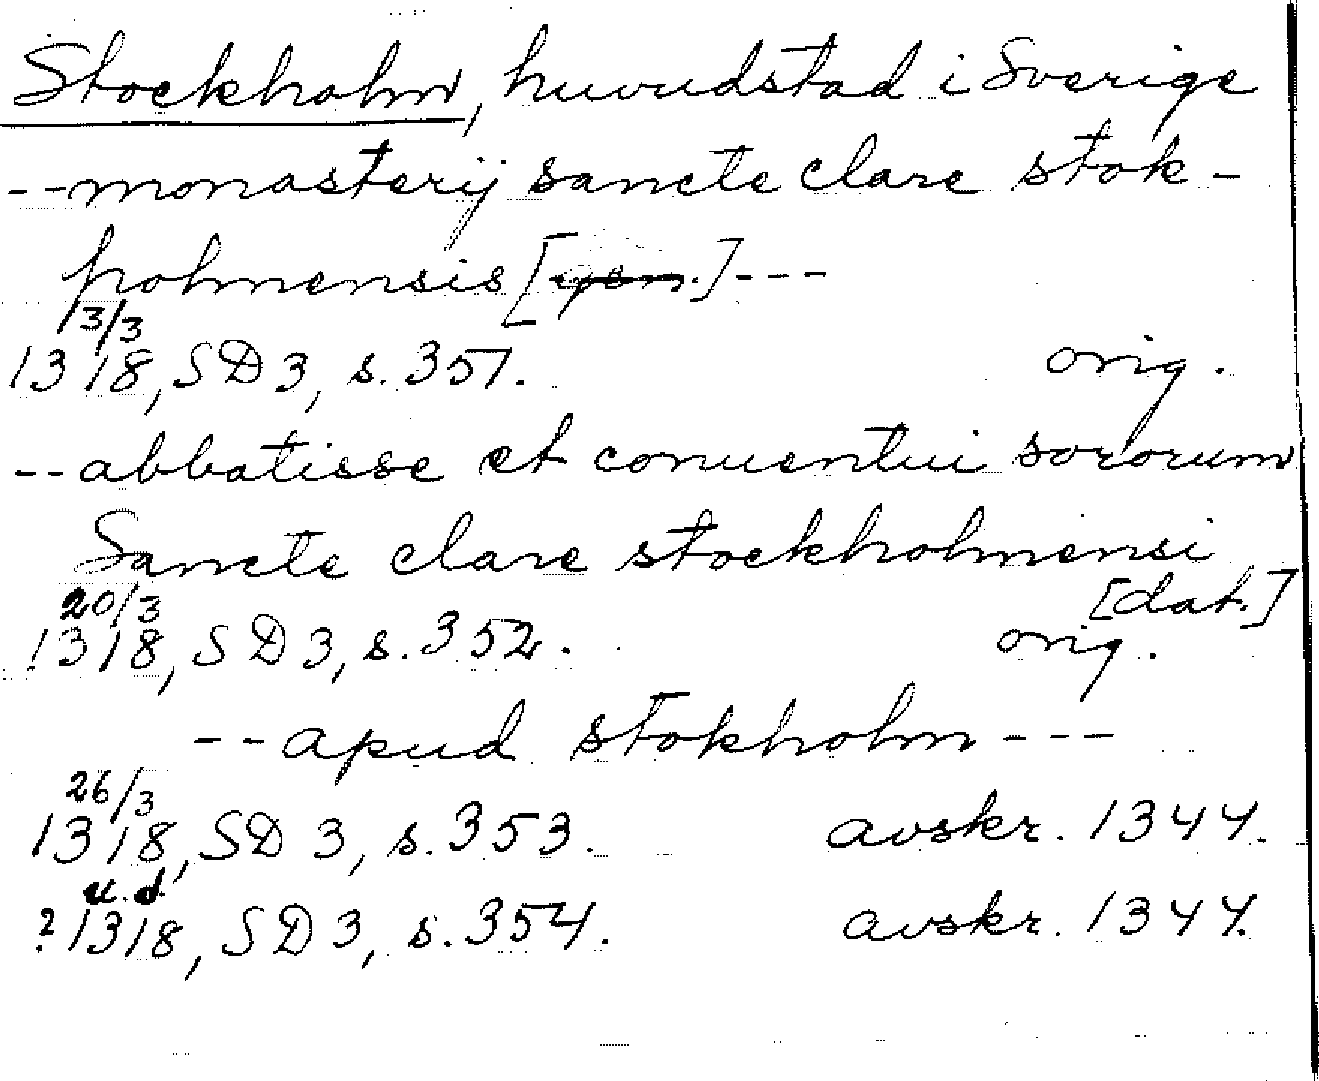 Stockholm, huvudstad i Sverige
--monasterij sancte clare stok-
holmensis [gen.]---
3/3
1318, SD 3, s. 351. orig.
--abbatisse et conuentui sororum
Sancte clare stockholmensi
[dat.]
20/3
1318, SD 3, s. 352. orig.
--apud stokholm---
26/3
1318, SD 3, s. 353. avskr. 1344.
u.d.
?1318, SD 3, s. 354. avskr. 1344.